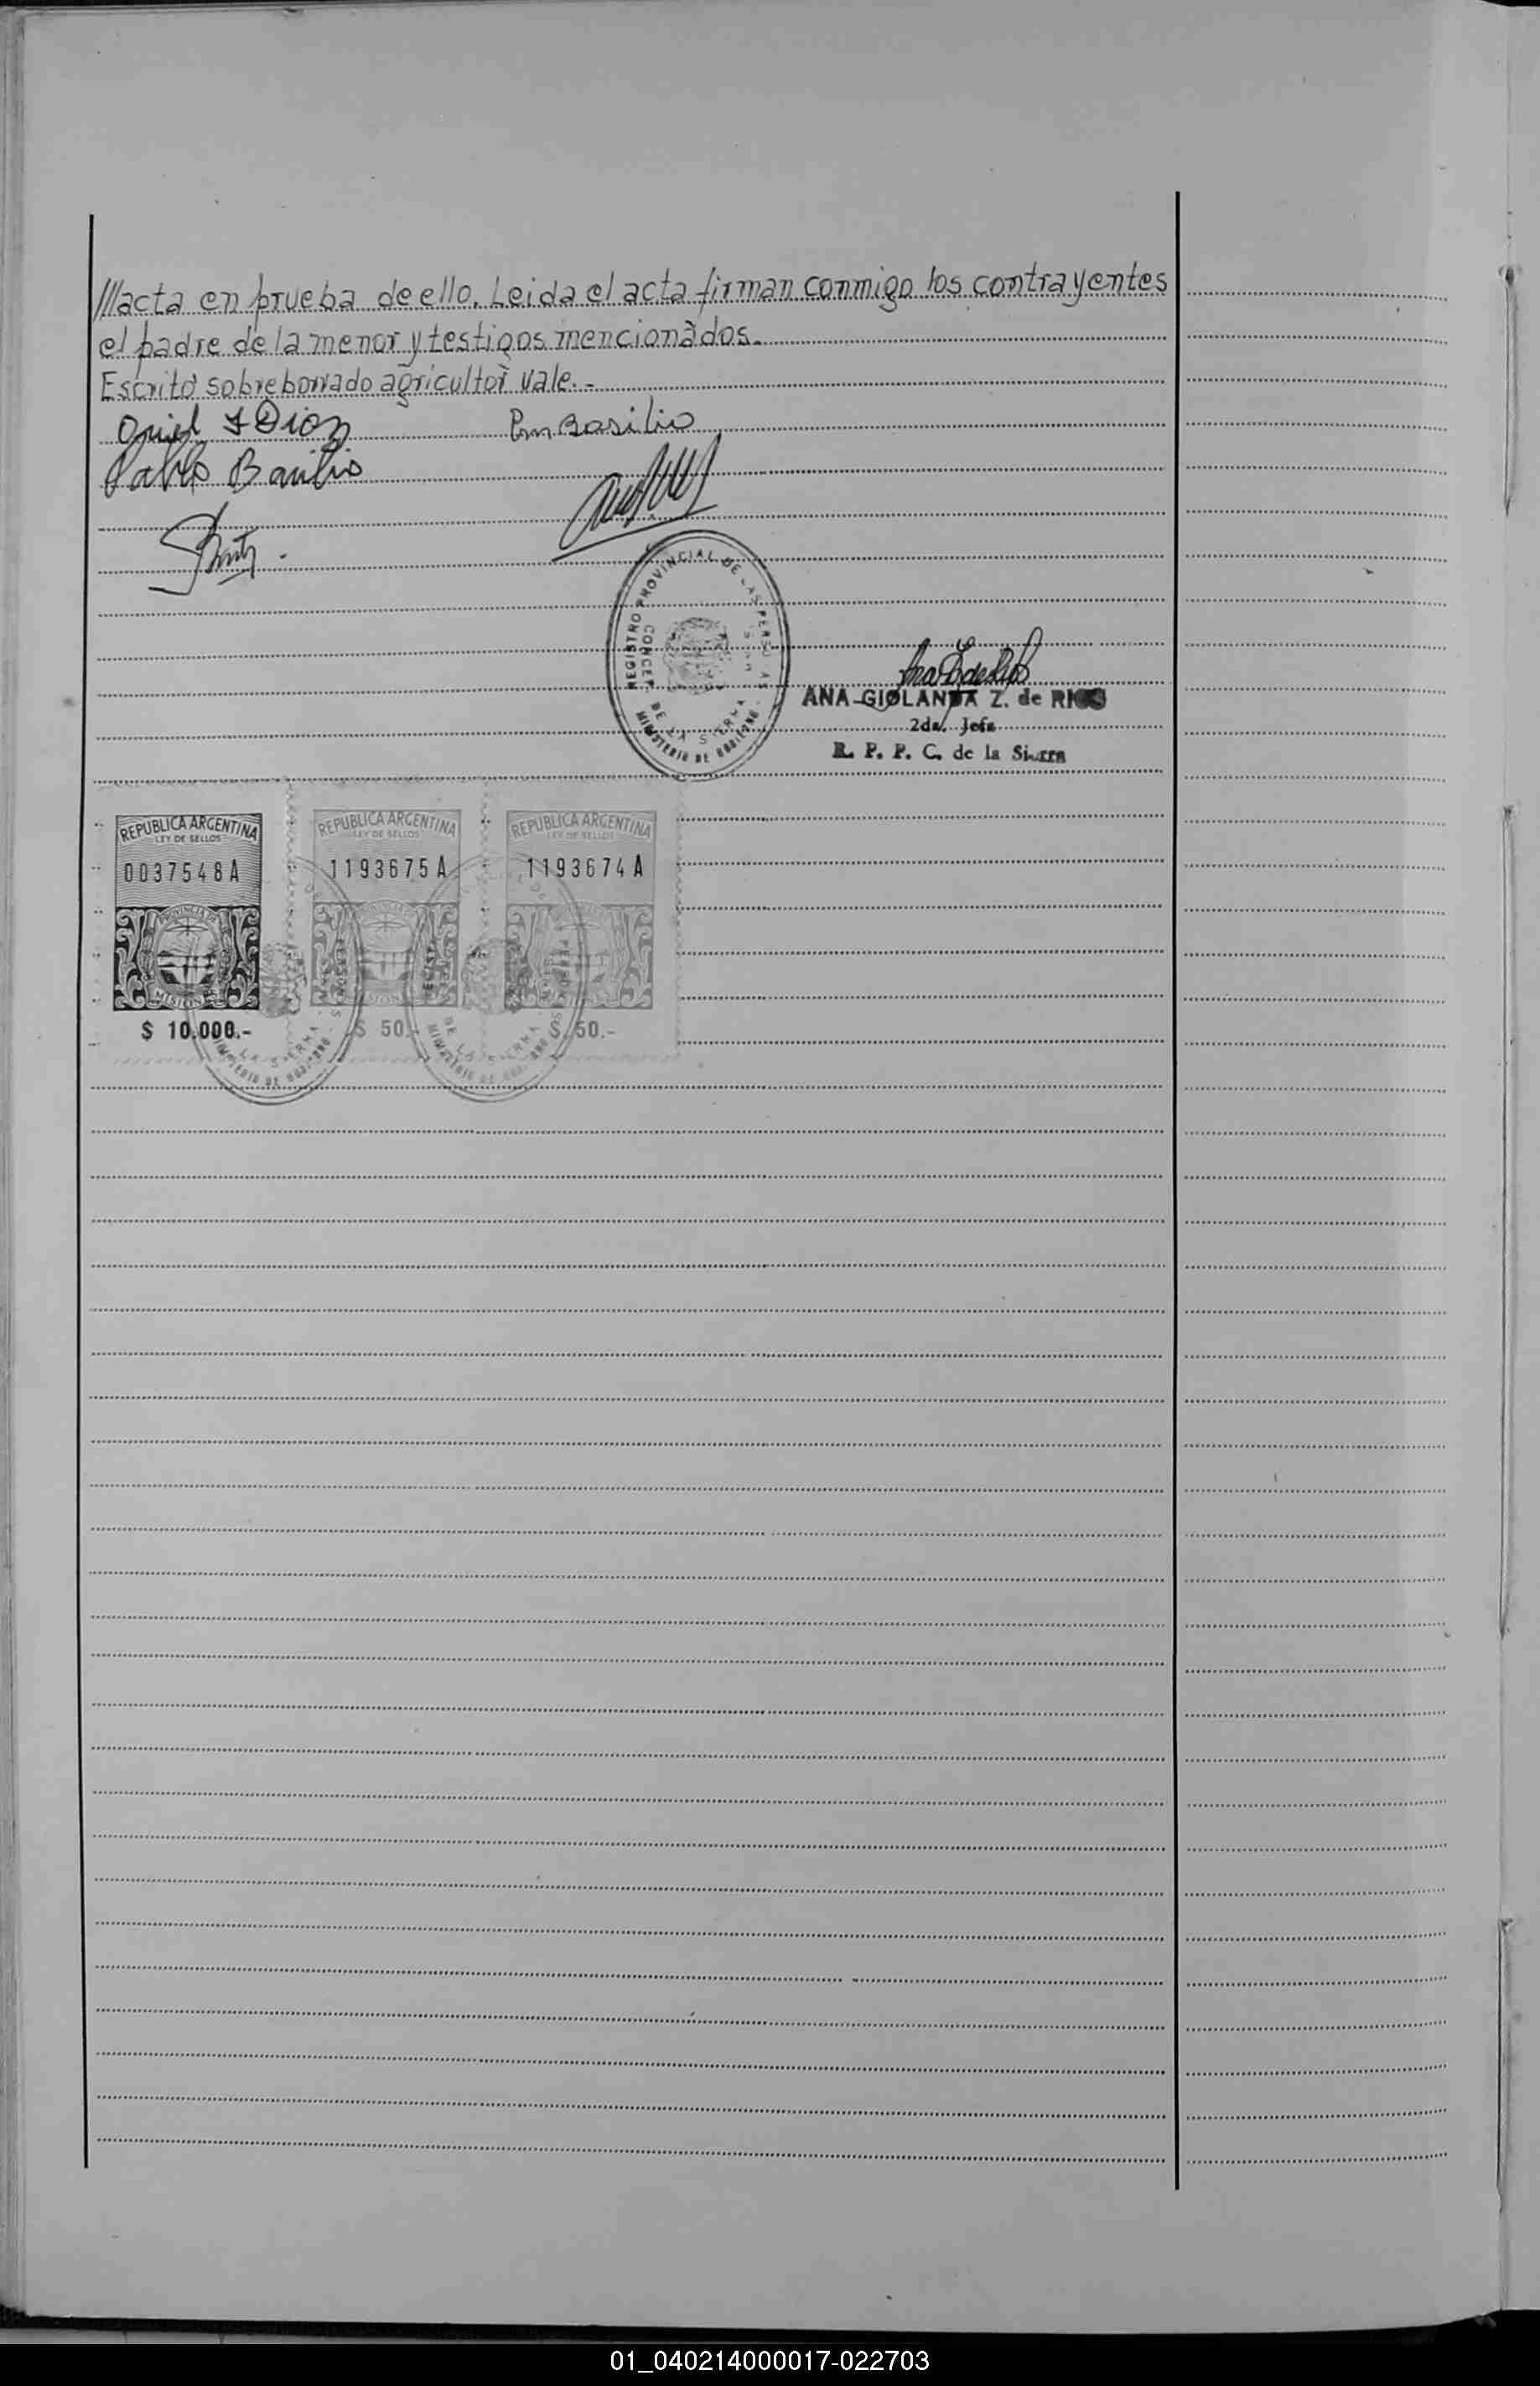 ///acta en prueba de ello. Leida el acta firman conmigo los contrayentes
el padre de la menor y testigos mencionados.
Escrito sobreborrado agricultor vale.-
Diaz Basilio
Pablo Basilio
REGISTRO PROVINCIAL DE LAS PERSONAS
CONCEP. DE LA SIERRA
MINISTERIO DE GOBIERNO
ANA GIOLANDA Z. de RIOS
2da. Jefe
R. P. P. C. de la Sierra
REPUBLICA ARGENTINA REPUBLICA ARGENTINA REPUBLICA ARGENTINA
LEY DE SELLOS LEY DE SELLOS LEY DE SELLOS
0037548A 1193675A 1193674A
PROVINCIA DE
MISIONES
$ 10.000.- $ 50.- $ 50.-
01_040214000017-022703